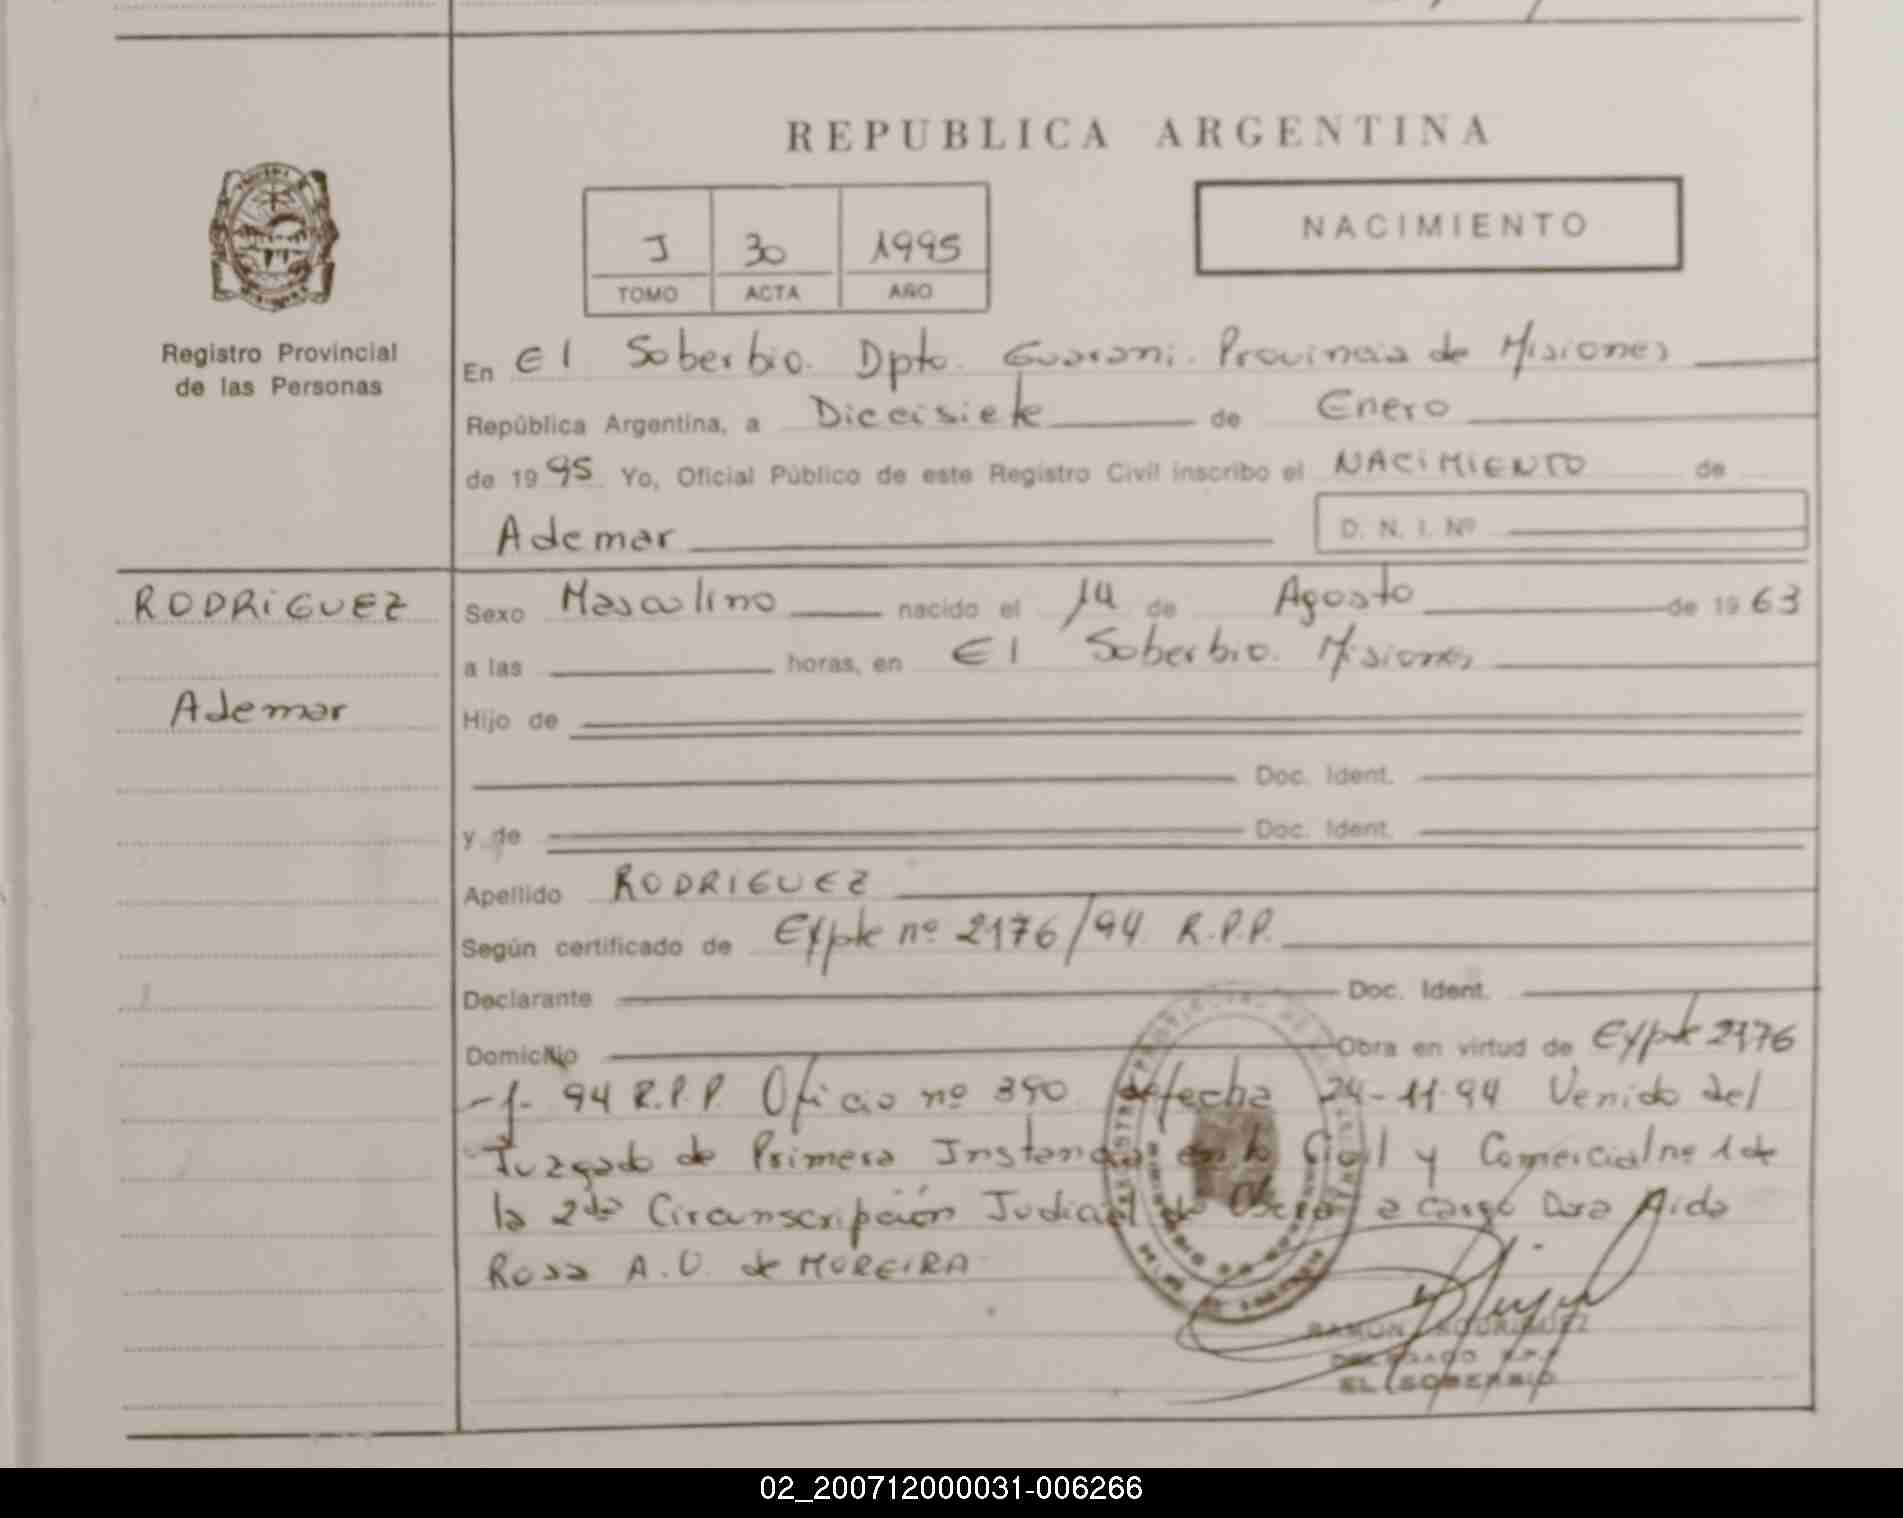 REPUBLICA ARGENTINA
J 30 1995
TOMO ACTA AÑO
NACIMIENTO
Registro Provincial
de las Personas
En El Soberbio. Dpto. Guarani. Provincia de Misiones
República Argentina, a Diecisiete de Enero
de 1995 Yo, Oficial Público de este Registro Civil inscribo el NACIMIENTO de
Ademar D. N. I. Nº
RODRIGUEZ
Ademar
Sexo Masculino nacido el 14 de Agosto de 1963
a las horas, en El Soberbio. Misiones
Hijo de
Doc. Ident.
y de Doc. Ident.
Apellido RODRIGUEZ
Según certificado de Expte nº 2176/94 R.P.P.
Declarante Doc. Ident.
Domicilio Obra en virtud de Expte 2176
-/- 94 R.P.P. Oficio nº 390 de fecha 24-11-94 Venido del
Juzgado de Primera Instancia en lo Civil y Comercial nº 1 de
la 2da Circunscripción Judicial de Obera a cargo Dra Aida
Rosa A. U. de MOREIRA
RAMON RODRIGUEZ
DELEGADO R.P.P.
EL SOBERBIO
02_200712000031-006266